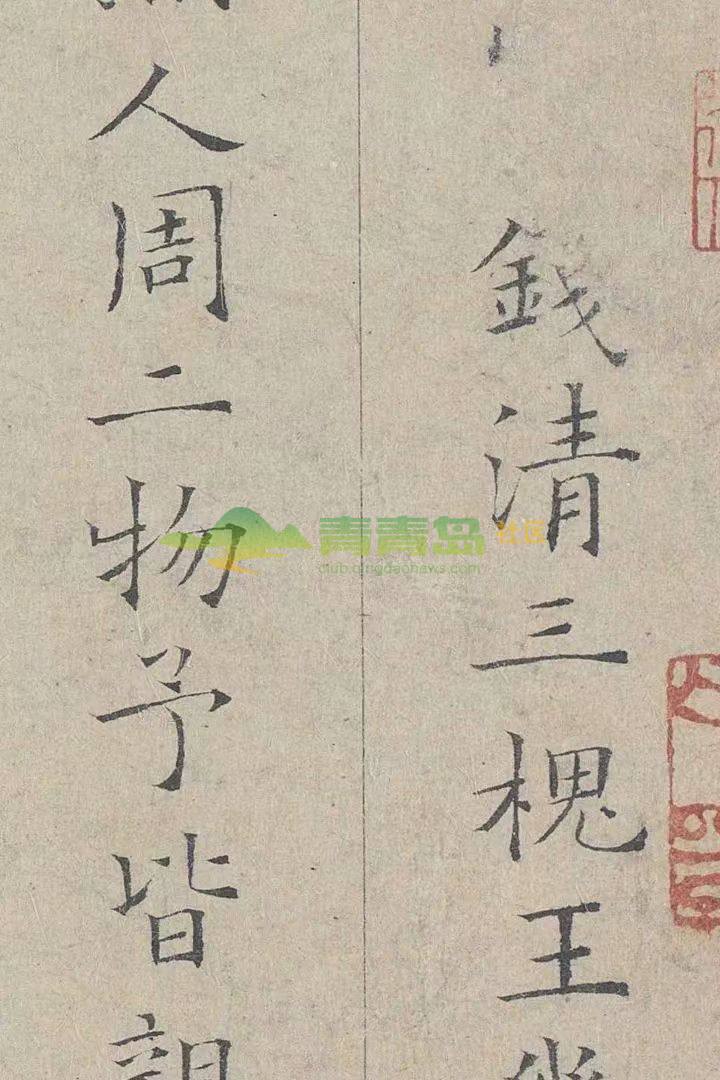 錢清三槐王
人周二物予皆
青青岛社区
club.qingdaonews.com